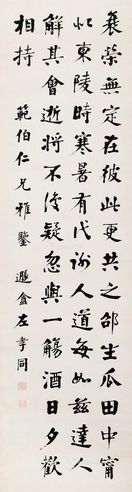 衰榮無定在彼此更共之邵生瓜田中甯
似東陵時寒暑有代謝人道每如茲達人
解其會逝將不復疑忽與一觴酒日夕歡
相持
範伯仁兄雅鑒
遯盦左孝同